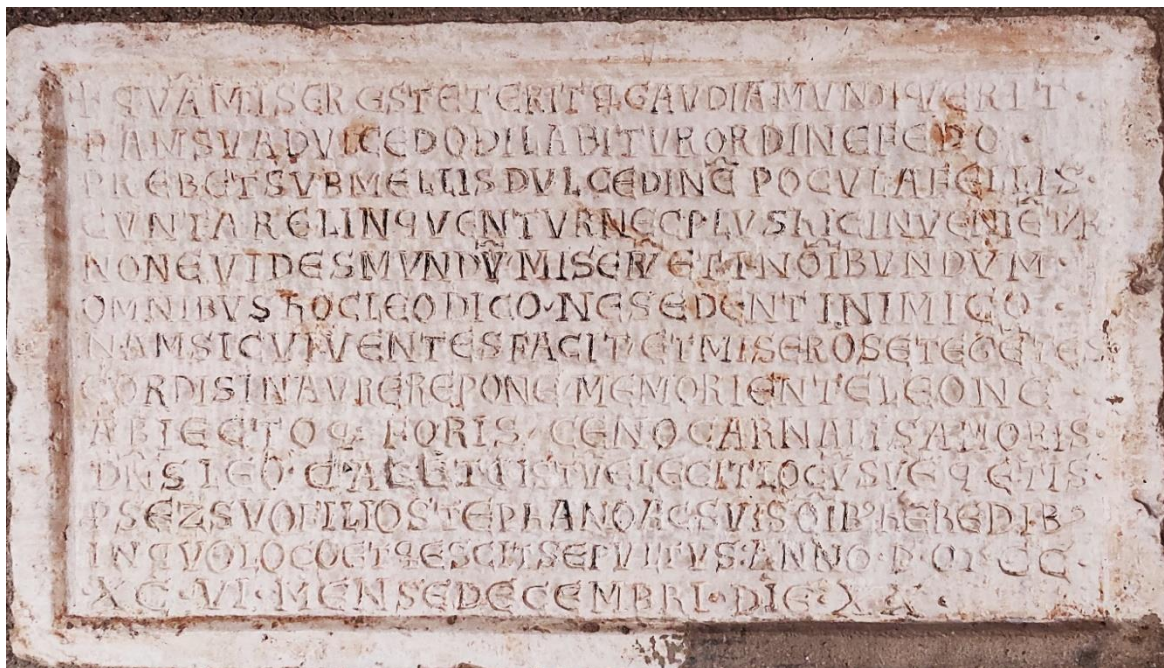 + QVA MISER EST ET ERIT Q GAVDIA MVNDI QVERIT
NAM SVA DVLCEDO DILABITVR ORDINE FEDO
PREBET SVB MELLIS DVLCEDINE POCVLA FELLIS
CVNTA RELINQVENTVR NEC PLVS HIC INVENIETVR
NONE VIDES MVNDV MISERV ET MOIBVNDVM
OMNIBVS HOC LEO DICO NE SEDENT INIMICO
NAM SIC VIVENTES FACIT ET MISEROS ET EGETES
CORDIS IN AVRE REPONE MEMORIENTE LEONE
ABIECTO Q FORIS CENO CARNALIS AMORIS
DNS LEO ISTV ELEGIT LOCV SVE QETIS
P SE Z SVO FILIO STEPHANO AC SVIS OIB HEREDIB
IN QVO LOCO ET QESCIT SEPVLTVS ANNO D M CC
XC VI MENSE DECEMBRI DIE XX